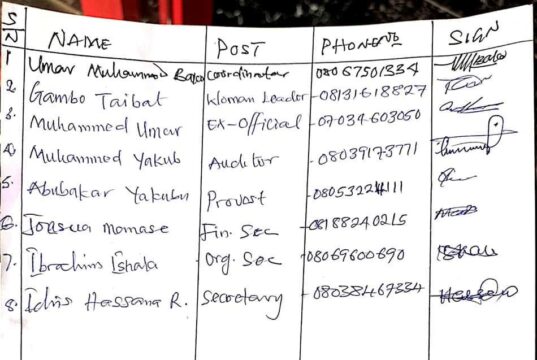 S/N NAME POST PHONE NO SIGN
1 Umar Muhammod Baba coordinator 08067501334
2. Gambo Taibat Woman Leader 08131618827
3. Muhammed Umar Ex-Official 07034603050
4. Muhammed Yakub Auditor 08039173771
5. Abubakar Yakubu Provost 08053224111
6. Joasua momase Fin. Sec 08188240215
7. Ibrahim Ishala Org. Sec 08069600690
8. Idris Hassana R. Secretary 08038467334